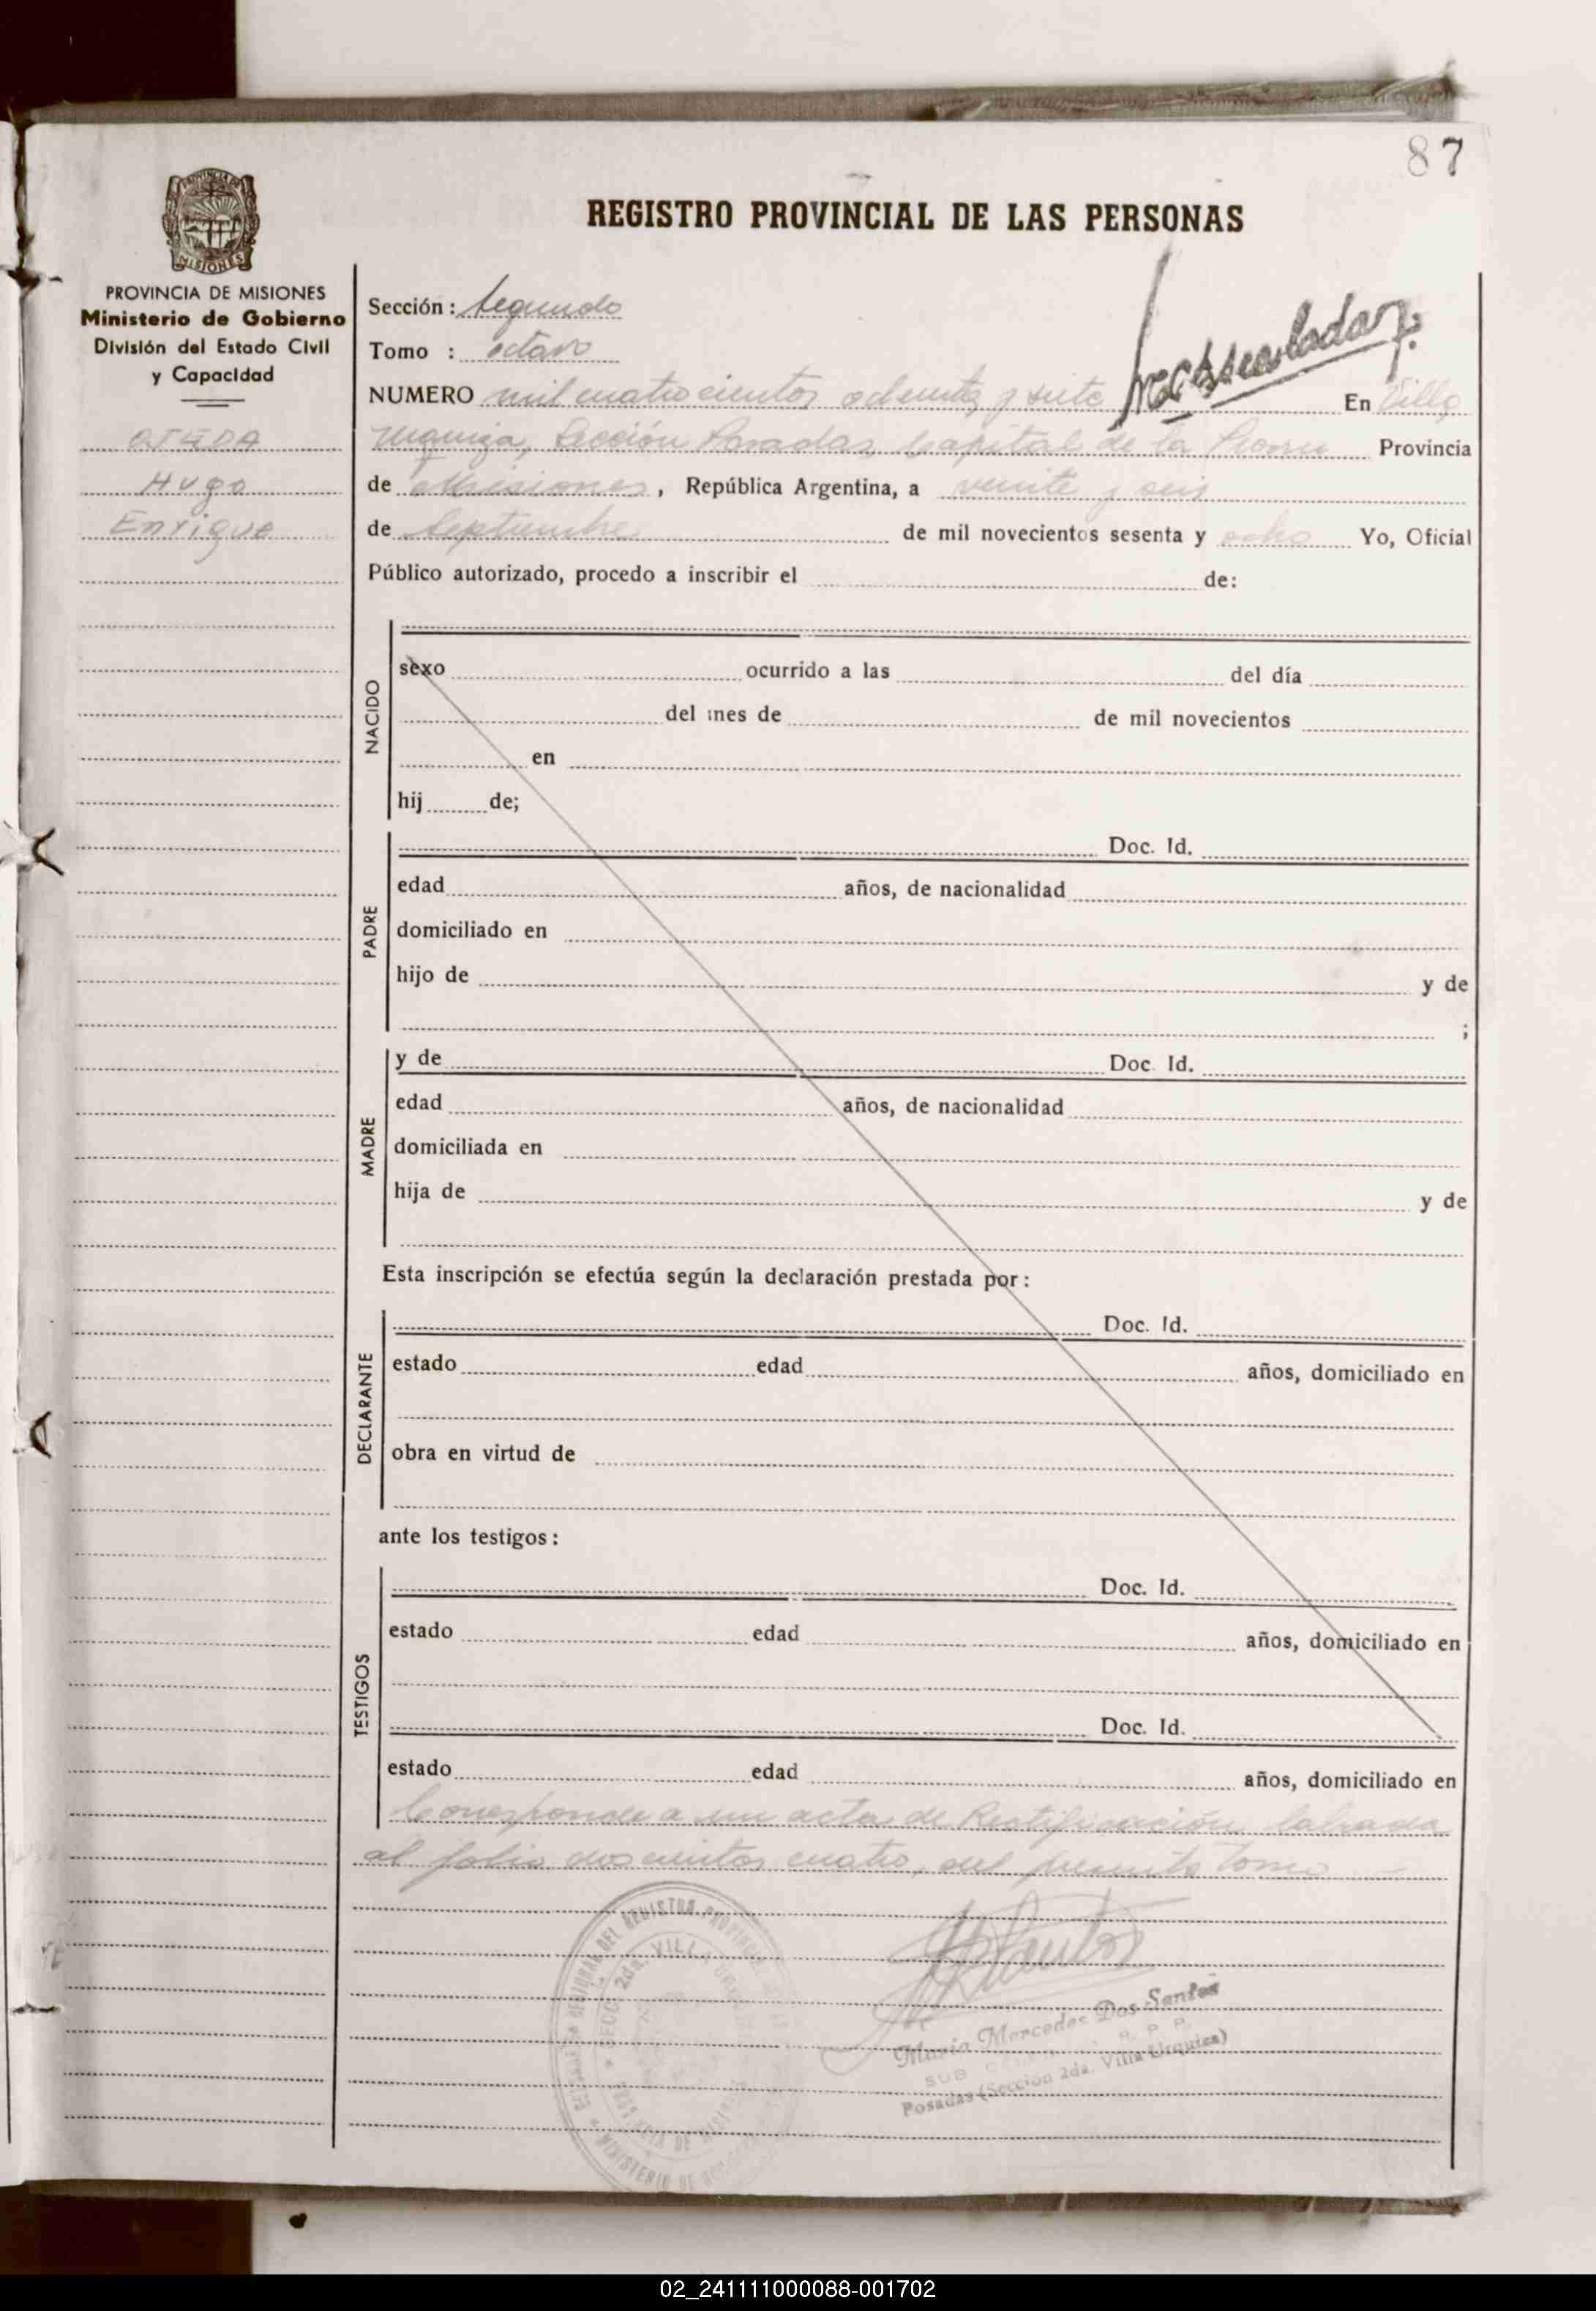 87
REGISTRO PROVINCIAL DE LAS PERSONAS
PROVINCIA DE
MISIONES
PROVINCIA DE MISIONES
Ministerio de Gobierno
División del Estado Civil
y Capacidad
OJEDA
Hugo
Enrique
Sección: Segunda
Tomo : octavo
NUMERO mil cuatrocientos ochenta y siete En Villa
Urquiza, Sección Posadas, Capital de la Provincia
de Misiones, República Argentina, a veinte y seis
de Septiembre de mil novecientos sesenta y ocho Yo, Oficial
Público autorizado, procedo a inscribir el de:
NACIDO
sexo ocurrido a las del día
del mes de de mil novecientos
en
hij de;
PADRE
Doc. Id.
edad años, de nacionalidad
domiciliado en
hijo de y de
;
MADRE
y de Doc. Id.
edad años, de nacionalidad
domiciliada en
hija de y de
Esta inscripción se efectúa según la declaración prestada por:
DECLARANTE
Doc. Id.
estado edad años, domiciliado en
obra en virtud de
ante los testigos:
TESTIGOS
Doc. Id.
estado edad años, domiciliado en
Doc. Id.
estado edad años, domiciliado en
Corresponde a un acta de Rectificación labrada
al folio doscientos cuatro, del presente tomo
DEL REGISTRO PROVINCIAL
SECC. 2da. VILLA URQUIZA
MINISTERIO DE
María Mercedes Dos Santos
SUB
Posadas (Sección 2da. Villa Urquiza)
02_241111000088-001702